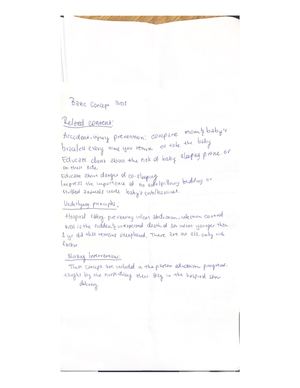 Basic Concept SIDS
Related content:
Accident/injury prevention: compare mom & baby's
bracelet every time you return or take the baby
Educate client about the risk of baby sleeping prone or
on their side.
Educate about dangers of co-sleeping
Impress the importance of no pillow bedding or
stuffed animals inside baby's environment.
Underlying principles
Hospital safety: preventing infant abduction, infection control
SIDS is the sudden, unexpected death of an infant younger than
1 yr old that remains unexplained. There are no
factor
Nursing Interventions:
This concept are included in the patient education program
taught by the nurse during their stay in the hospital after
delivery